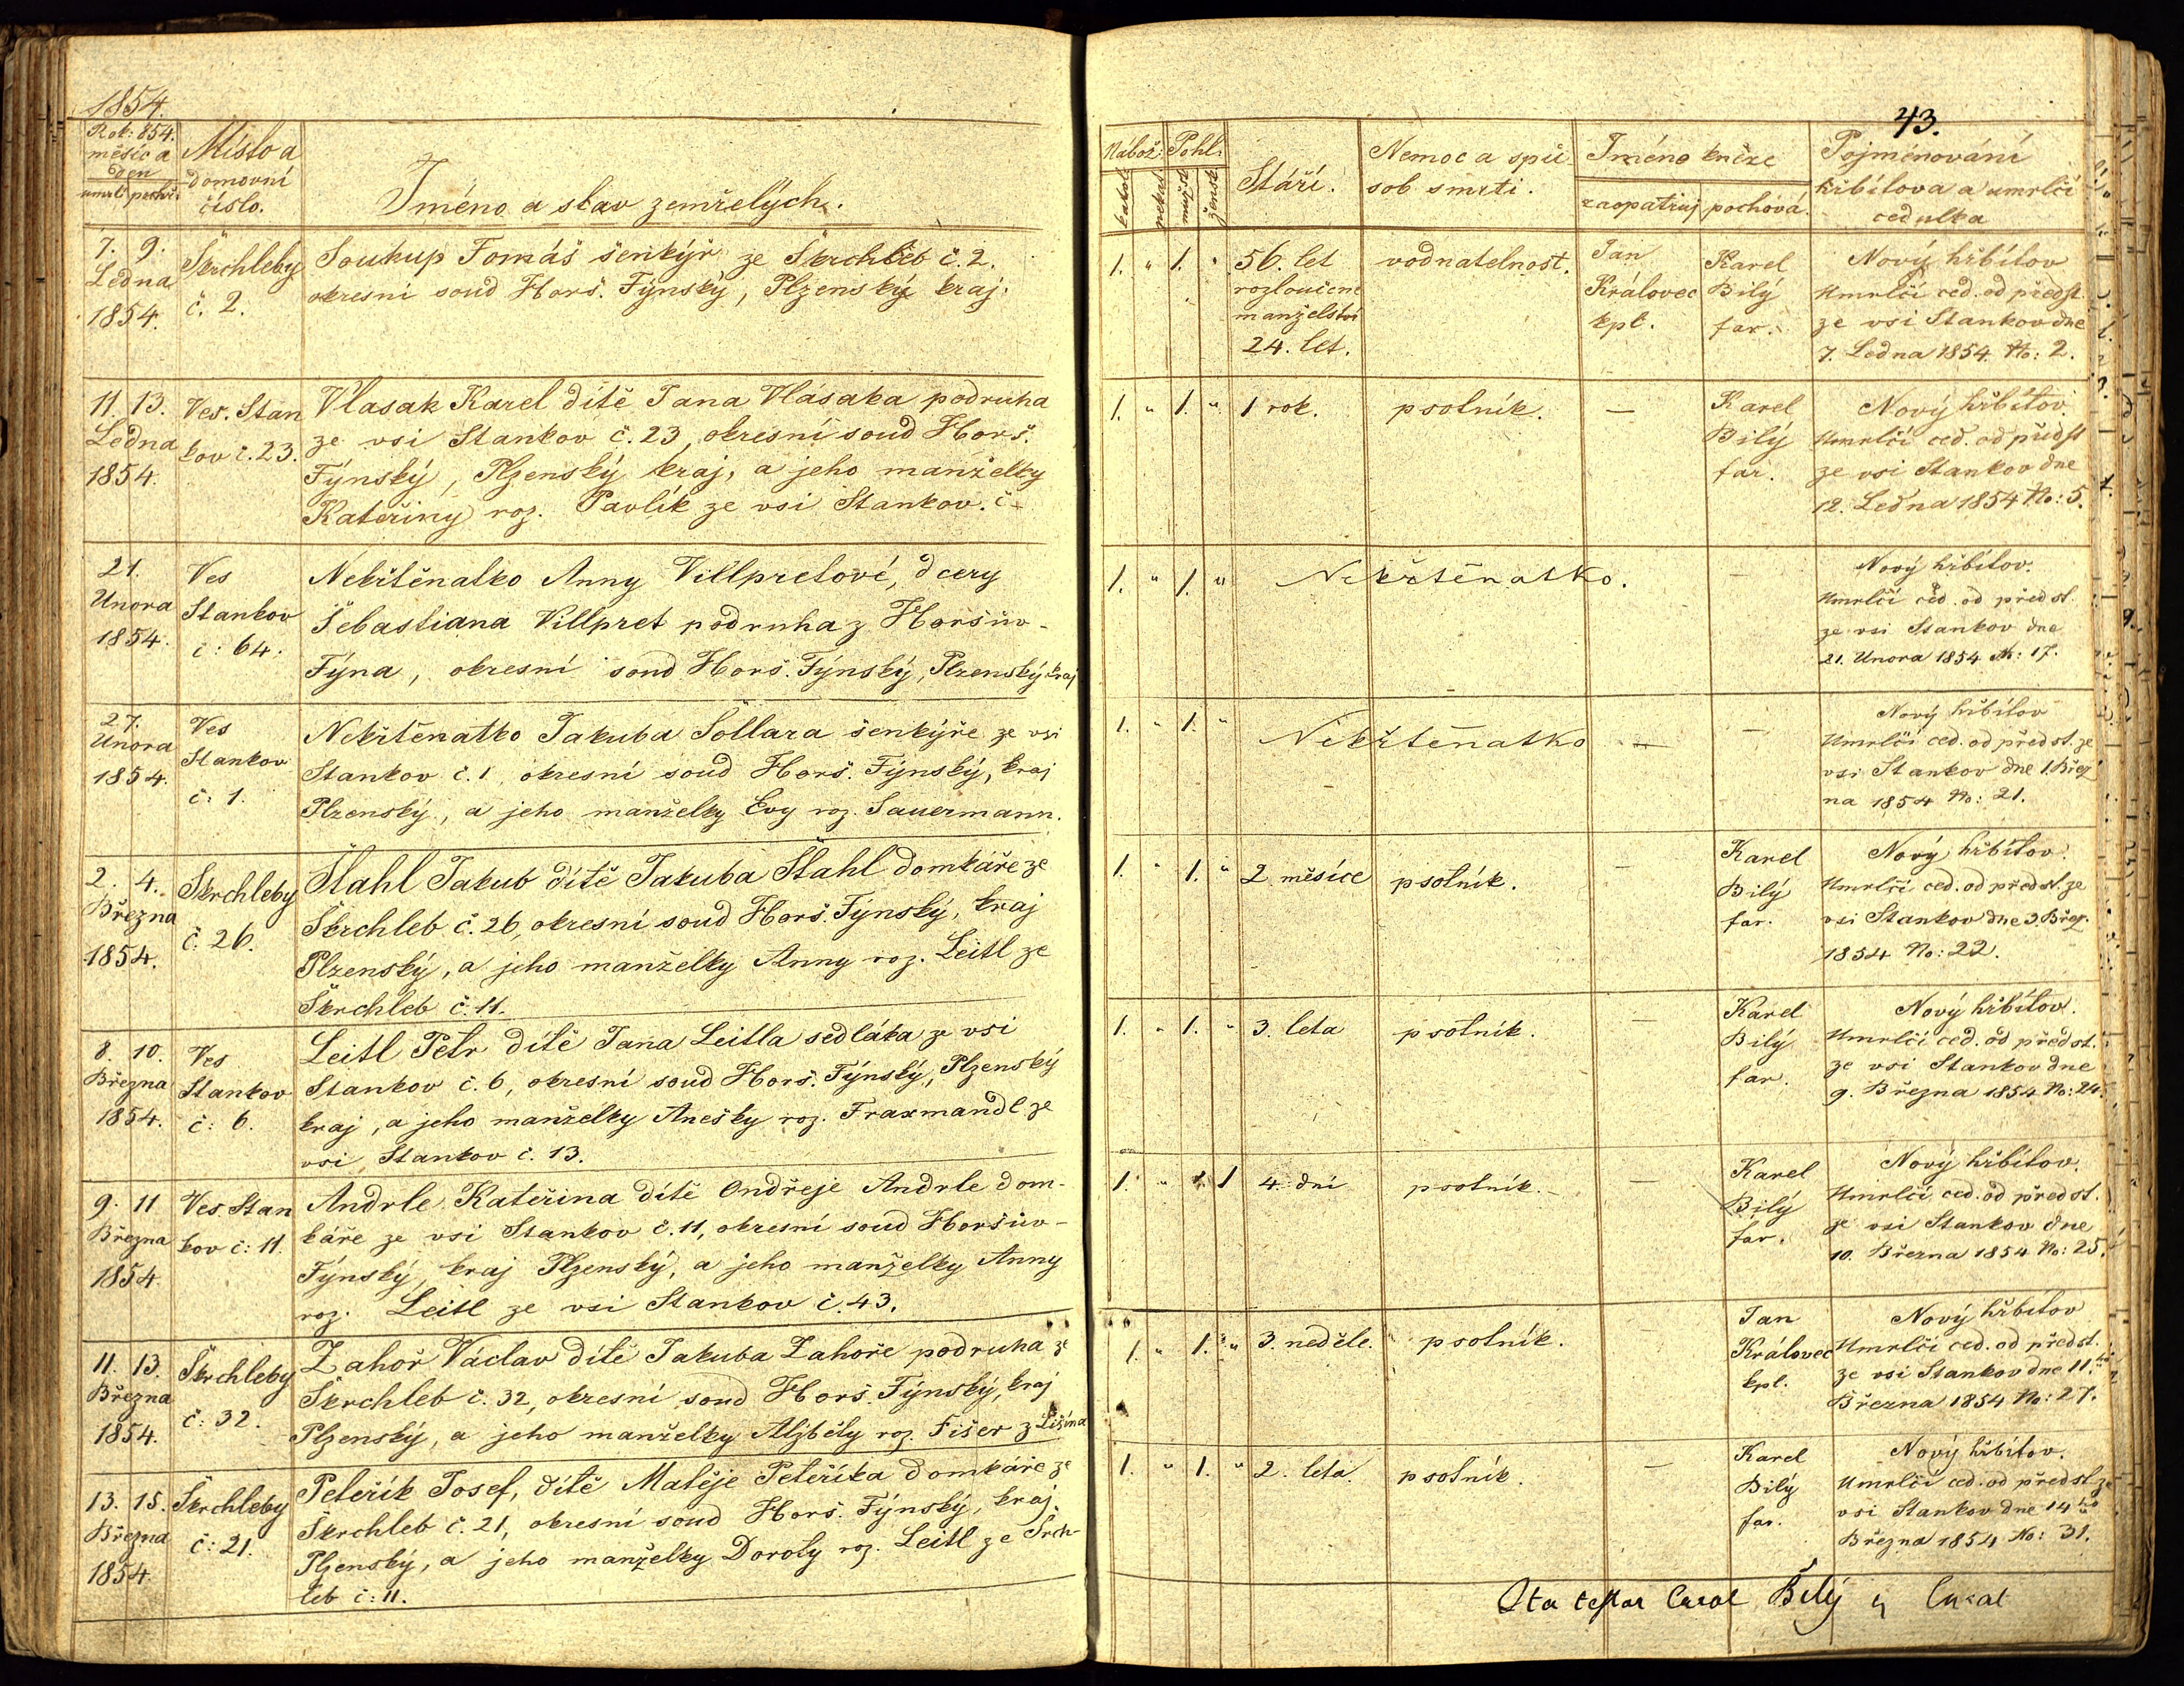 1854.
Rok: 854.
měsíc a
den
umrtí pochř:
Místo a
domovní
číslo.
Jméno a stav zemřelých.
7. 9.
Ledna
1854.
Škrchleby
č. 2.
Soukup Tomáš šenkýř ze Škrchleb č. 2.
okresní soud Horš. Týnský, Plzenský kraj.
11. 13.
Ledna
1854.
Ves. Stan
kov č. 23.
Vlasak Karel dítě Jana Vlásaka podruha
ze vsi Stankov č. 23, okresní soud Horš.
Týnský, Plzenský kraj, a jeho manželky
Kateřiny roz. Pavlík ze vsi Stankov. č-
21.
Unora
1854.
Ves
Stankov
č: 64.
Nekřtěnatko Anny Villpretové, dcery
Šebastiana Villpret podruha z Horšův-
Týna, okresní soud Horš. Týnský, Plzenský kraj
27.
Unora
1854.
Ves
Stankov
č: 1.
Nekřtěnatko Jakuba Šollara šenkýře ze vsi
Stankov č. 1, okresní soud Horš. Týnský, kraj
Plzenský, a jeho manželky Evy roz. Sauermann.
2. 4.
Března
1854.
Škrchleby
č. 26.
Štahl Jakub dítě Jakuba Štahl domkáře ze
Škrchleb č. 26, okresní soud Horš. Týnský, kraj
Plzenský, a jeho manželky Anny roz. Leitl ze
Škrchleb č. 11.
8. 10.
Března
1854.
Ves
Stankov
č: 6.
Leitl Petr dítě Jana Leitla sedláka ze vsi
Stankov č. 6, okresní soud Horš. Týnský, Plzenský
kraj, a jeho manželky Anešky roz. Fraxmandl ze
vsi Stankov č. 13.
9. 11
Března
1854
Ves. Stan
kov č: 11.
Andrle Kateřina dítě Ondřeje Andrle dom-
káře ze vsi Stankov č. 11, okresní soud Horšův-
Týnský, kraj Plzenský, a jeho manželky Anny
roz. Leitl ze vsi Stankov č. 43.
11. 13.
Března
1854.
Škrchleby
č: 32.
Zahoř Václav dítě Jakuba Zahoře podruha ze
Škrchleb č. 32, okresní soud Horš. Týnský, kraj
Plzenský, a jeho manželky Alžběty roz. Fišer z Lišína
13. 15.
Března
1854
Škrchleby
č: 21.
Peteřík Josef, dítě Matěje Peteříka domkáře ze
Škrchleb č. 21, okresní soud Horš. Týnský, kraj.
Plzenský, a jeho manželky Doroty roz. Leitl ze Šrch-
leb č: 11.
43.
Nábož: Pohl:
katol nekat mužs žensk
Stáří.
Nemoc a spů
sob smrti.
Jméno kněze
zaopatruj pochová.
Pojménování
hřbitova a umrlčí
cedulka
1. " 1. "
56. let
rozloučené
manželství
24. let.
vodnatelnost.
Jan
Královec
kpl.
Karel
Bilý
far.
Nový hřbitov
Umrlčí ced. od předst.
ze vsi Stankov dne
7. Ledna 1854 No: 2.
1. " 1. " 1 rok. psotník. —
Karel
Bilý
far.
Nový hřbitov.
Umrlčí ced. od předst
ze vsi Stankov dne
12. Ledna 1854 No: 5.
1. " 1. " Nekřtěnatko. —
Nový hřbitov.
Umrlčí ced. od předst.
ze vsi Stankov dne
21. Unora 1854 No: 17.
1. " 1. " Nekřtěnatko — —
Nový hřbitov
Umrlčí ced. od předst. ze
vsi Stankov dne 1. Břez
na 1854 No: 21.
1. " 1. " 2 měsíce psotník. —
Karel
Bilý
far.
Nový hřbitov.
Umrlčí ced. od předst. ze
vsi Stankov dne 3. Břez.
1854 No: 22.
1. " 1. " 3. leta psotník. —
Karel
Bilý
far.
Nový hřbitov.
Umrlčí ced. od předst.
ze vsi Stankov dne
9. Března 1854 No: 24.
1. " 1 4. dni psotník. —
Karel
Bilý
far.
Nový hřbitov.
Umrlčí ced. od předst.
ze vsi Stankov dne
10. Března 1854 No: 25.
1. " 1. " 3. neděle. psotník. —
Jan
Královec
kpl.
Nový hřbitov
Umrlčí ced. od předst.
ze vsi Stankov dne 11.ho
Března 1854 No: 27.
1. " 1. " 2. leta. psotník. —
Karel
Bilý
far.
Nový hřbitov.
Umrlčí ced. od předst. ze
vsi Stankov dne 14ho
Března 1854 No: 31.
Ita testor Carol Bilý